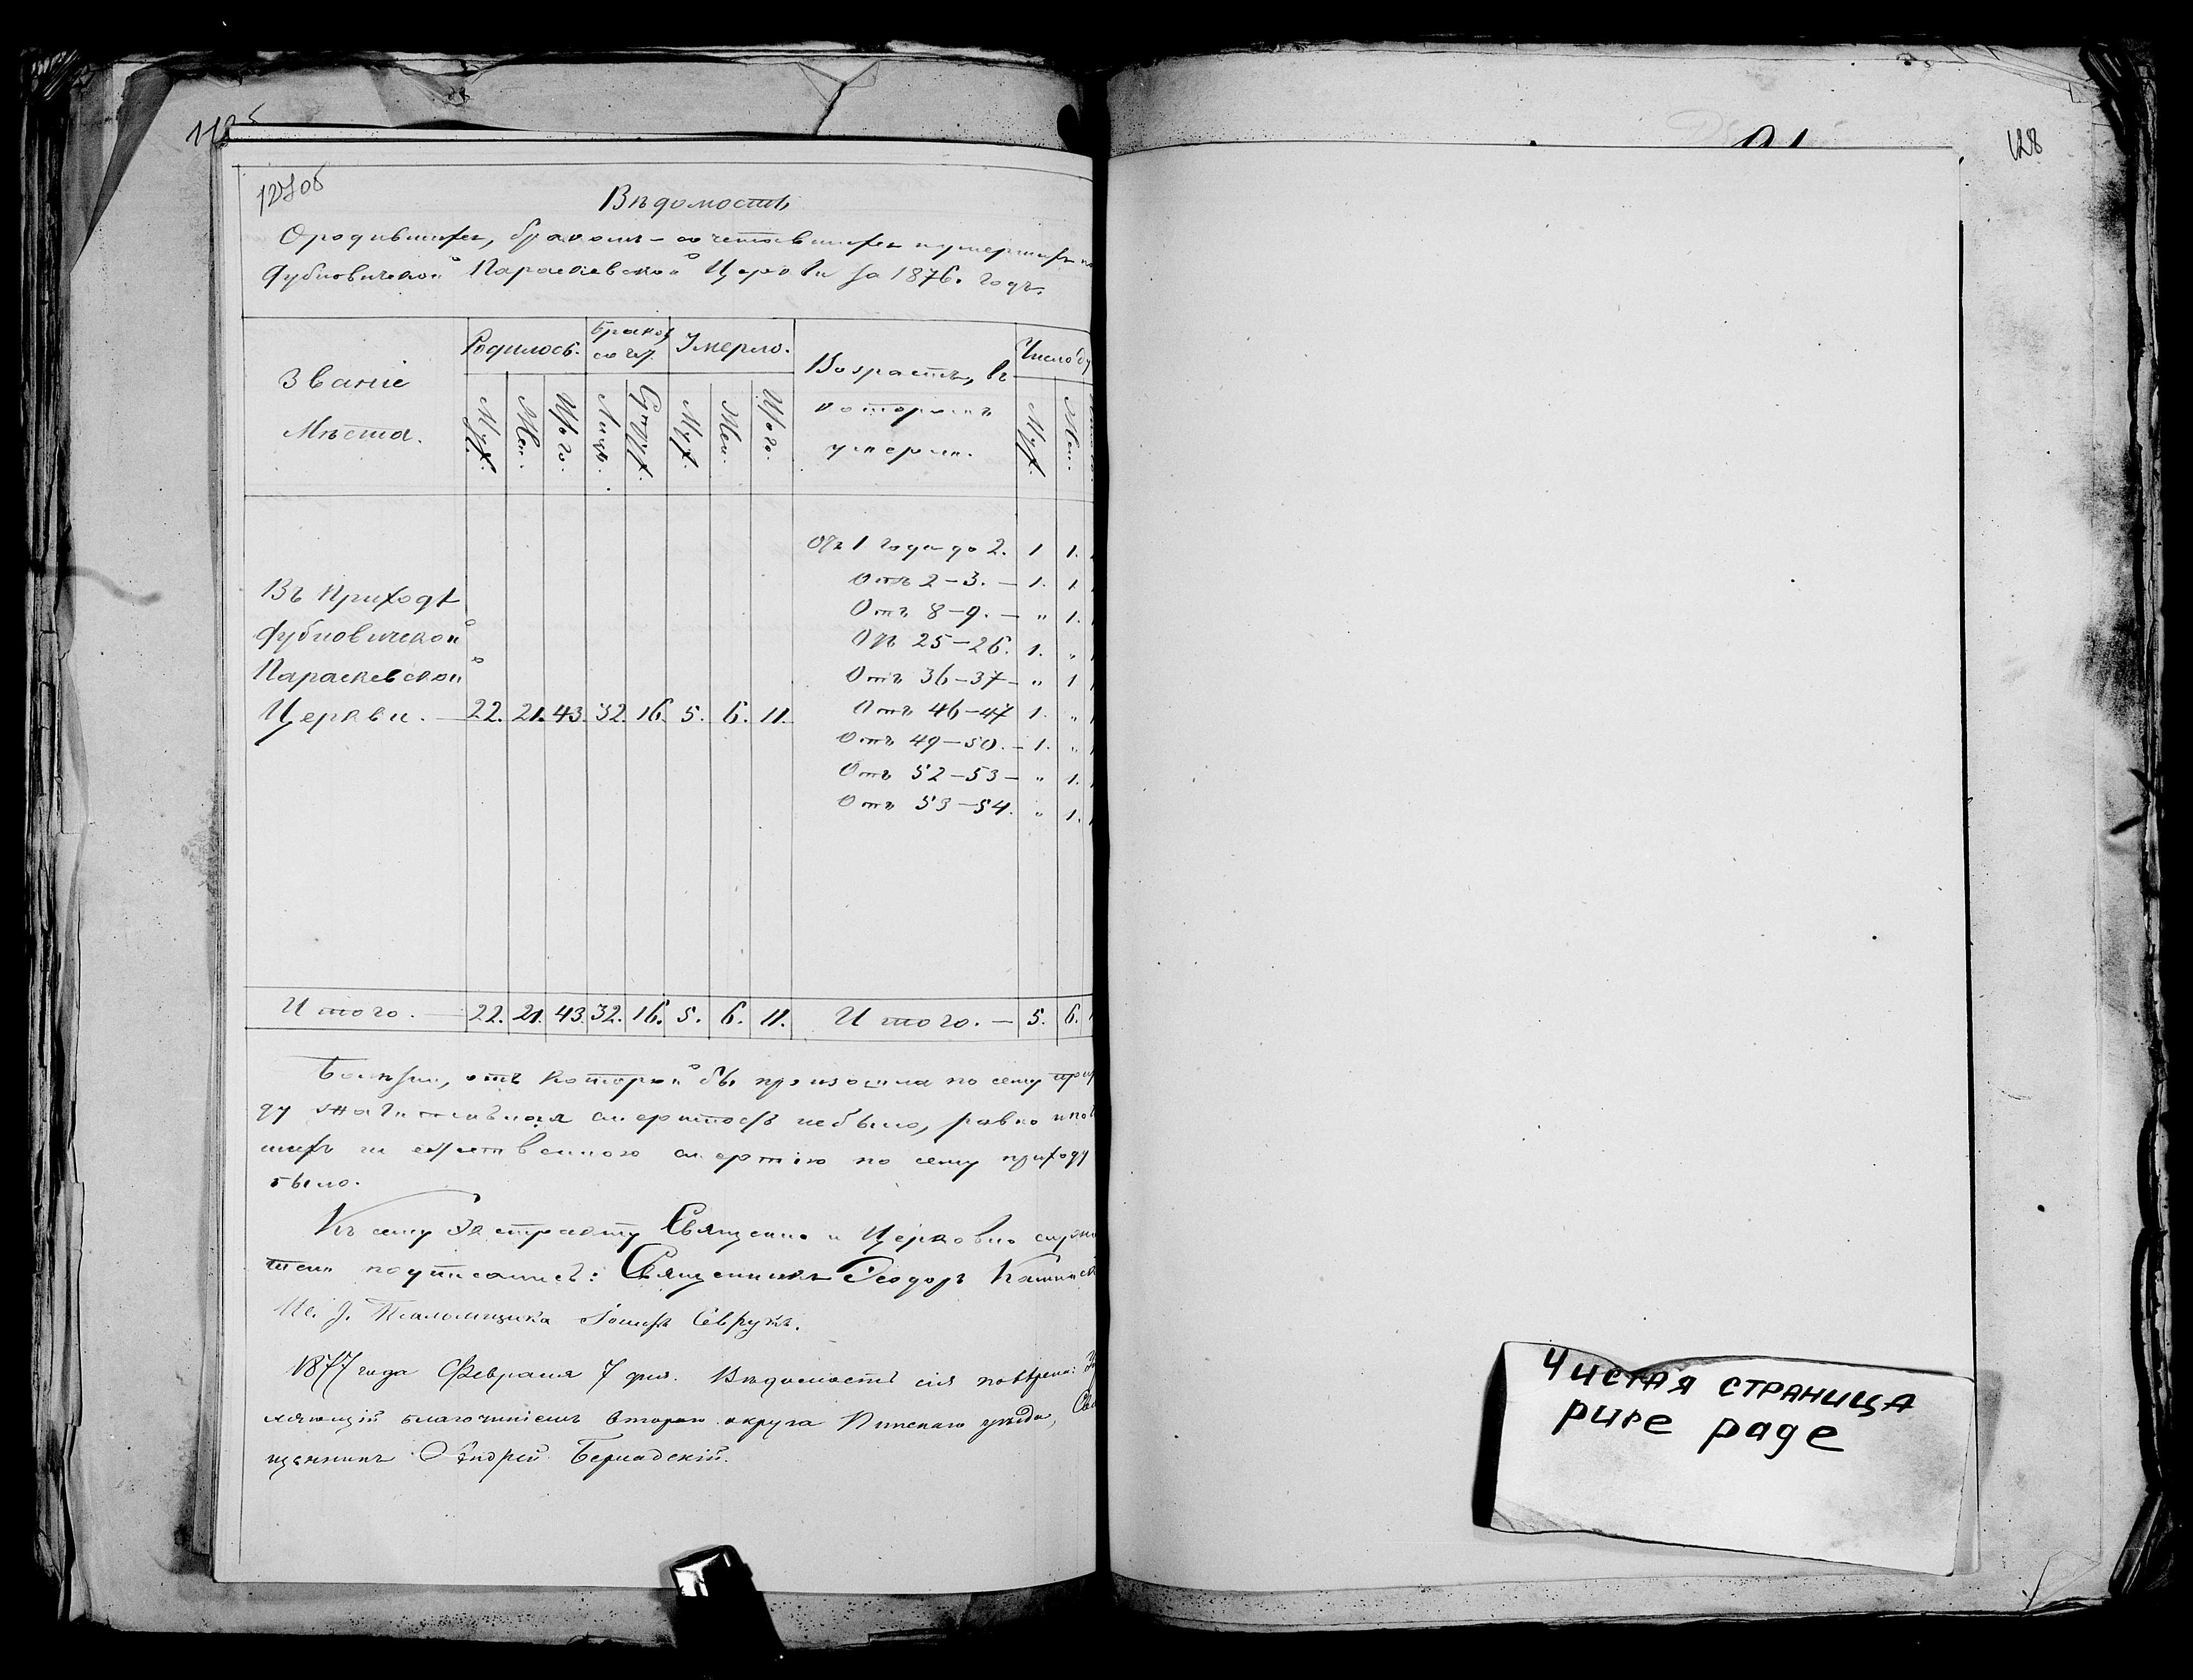 127об
Вѣдомость
О родившихся, бракомъ-сочетавшихся и умершихъ по
Дубновичской Параскевской Церкви за 1876. годъ.
Званіе
Мѣста.
Родилось.
Браков.
соч.
Умерло.
Возрастъ, въ
которомъ
умерли.
Число
Муж. Жен. Итого. Лицъ. Супруж. Муж. Жен. Итого. Муж. Жен.
Отъ 1 года до 2. 1 1.
Отъ 2-3. — 1. 1
Отъ 8-9. — " 1.
Отъ 25-26. 1. "
Отъ 36-37 — " 1
Отъ 46-47 1. "
Отъ 49-50. — 1. "
Отъ 52-53 — " 1.
Отъ 53-54. " 1.
Въ Приходѣ
Дубновичской
Параскевской
Церкви. — 22. 21. 43. 32. 16. 5. 6. 11.
Итого. — 22. 21. 43. 32. 16. 5. 6. 11. Итого. — 5. 6.
Болѣзни, отъ которой бы произошла по сему при
ду значительная смертность не было, равно
шихъ не естественною смертію по сему приходу
было.
Къ сему Экстракту Священно и Церковно служи
тели подписались: Священникъ Ѳеодоръ
Ис. д. Псаломщика Іосифъ Севрукъ.
1877 года Февраля 7 дня. Вѣдомость сія
ляющій благочиніемъ втораго округа Пинскаго уѣзда, Свя
щенникъ Андрей Бернадскій.
128
Чистая страница
pure page